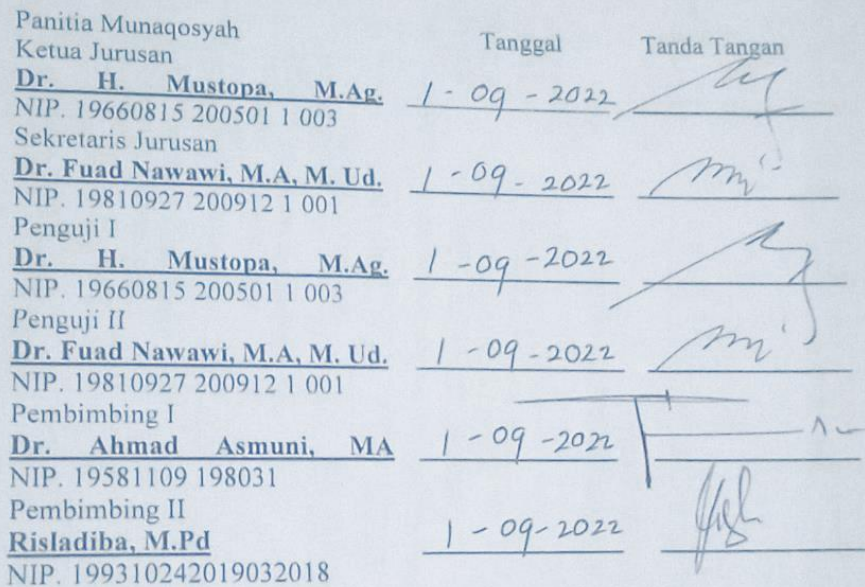 Panitia Munaqosyah
Ketua Jurusan Tanggal Tanda Tangan
Dr. H. Mustopa, M.Ag. 1 - 09 - 2022
NIP. 19660815 200501 1 003
Sekretaris Jurusan
Dr. Fuad Nawawi, M.A, M. Ud. 1 - 09 - 2022
NIP. 19810927 200912 1 001
Penguji I
Dr. H. Mustopa, M.Ag. 1 - 09 - 2022
NIP. 19660815 200501 1 003
Penguji II
Dr. Fuad Nawawi, M.A, M. Ud. 1 - 09 - 2022
NIP. 19810927 200912 1 001
Pembimbing I
Dr. Ahmad Asmuni, MA 1 - 09 - 2022
NIP. 19581109 198031
Pembimbing II
Risladiba, M.Pd 1 - 09 - 2022
NIP. 199310242019032018